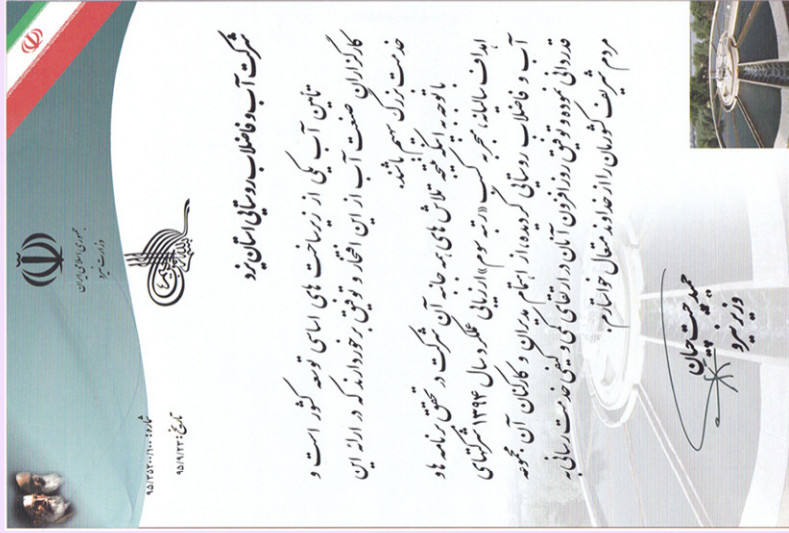 جمهوری اسلامی ایران
وزارت نیرو
شماره: ۹۵/۲۵۲۰۰/۱۰۰
تاریخ: ۹۵/۹/۲۳
شرکت آب و فاضلاب روستایی استان یزد
تامین آب یکی از زیرساخت های اساسی توسعه کشور است و
کارگزاران صنعت آب از این افتخار و توفیق برخوردارند که در ارائه این
خدمت بزرگ سهیم باشند.
با توجه به اینکه نتیجه تلاش های همه جانبه آن شرکت در تحقق برنامه ها و
اهداف سالیانه، منجر به کسب «رتبه سوم» ارزیابی عملکرد سال ۱۳۹۴ شرکتهای
آب و فاضلاب روستایی گردیده، از اهتمام مدیران و کارکنان آن مجموعه
قدردانی نموده و توفیق روزافزون آنان در ارتقای کمی و کیفی خدمت رسانی به
مردم شریف کشورمان را از خداوند متعال خواستارم.
حمید چیت چیان
وزیر نیرو